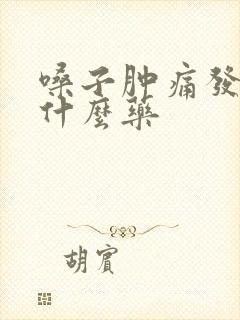 嗓子肿痛發
什麼藥
胡賓